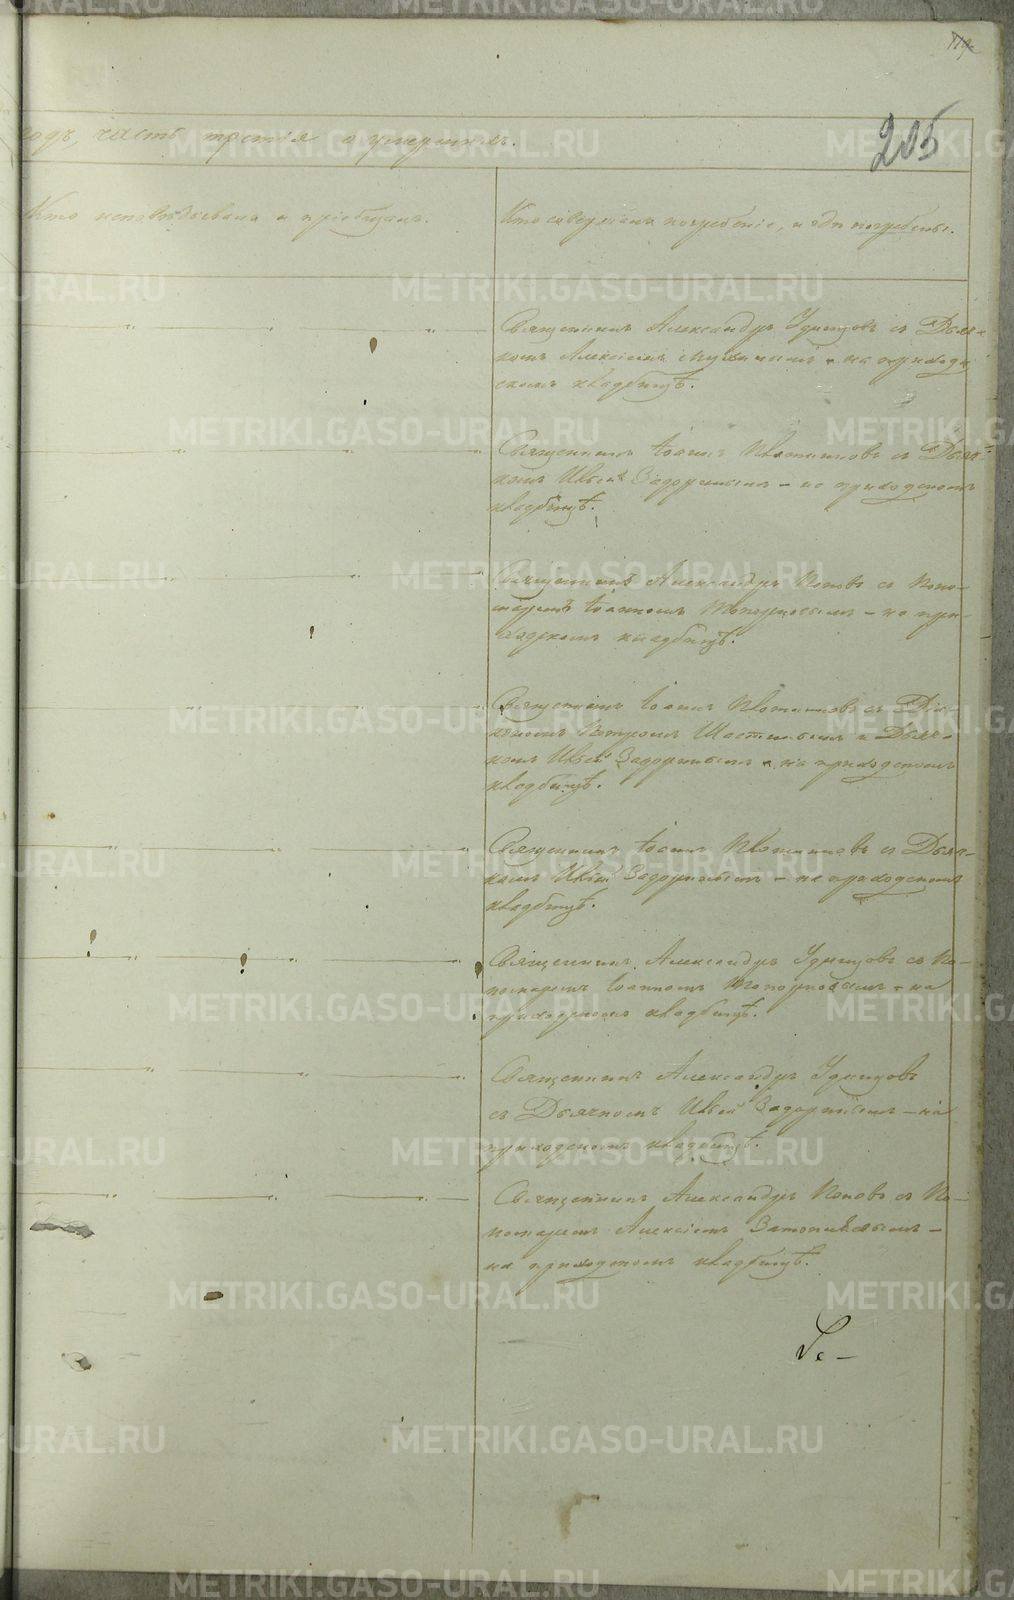 205
годъ, часть третія о умершихъ.
Кто исповѣдывалъ и пріобщалъ.
Кто совершалъ погребеніе, и гдѣ погребены.
Священникъ Александръ Удинцовъ съ Дьяч-
комъ Алексіемъ на приходс
скомъ кладбищѣ.
Священникъ Іоаннъ Плотниковъ съ Дьяч-
комъ Задоринымъ – на приходскомъ
кладбищѣ.
Священникъ Александръ Поповъ съ Поно-
маремъ Іоанномъ Топорковымъ – на при-
ходскомъ кладбищѣ.
Священникъ Іоаннъ Плотниковъ съ Діа-
кономъ Петромъ и Дьяч-
комъ Задоринымъ – на приходскомъ
кладбищѣ.
Священникъ Іоаннъ Плотниковъ съ Дьяч-
комъ Задоринымъ – на приходскомъ
кладбищѣ.
Священникъ Александръ Удинцовъ съ По-
номаремъ Іоанномъ Топорковымъ – на
приходскомъ кладбищѣ.
Священникъ Александръ Удинцовъ
съ Дьячкомъ Задоринымъ – на
приходскомъ кладбищѣ.
Священникъ Александръ Поповъ съ По-
номаремъ Алексіемъ –
на приходскомъ кладбищѣ.
METRIKI.GASO-URAL.RU